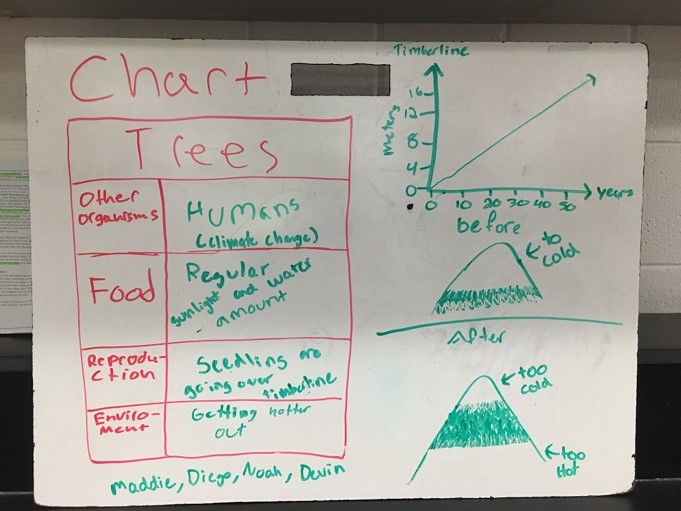 Chart
Trees
Other
organisms
Humans
(climate change)
Food
Regular
sunlight and water
amount
Reprodu-
ction
Seedling are
going over timberline
Enviro-
ment
Getting hotter
out
Maddie, Diego, Noah, Devin
Timberline
meters
16
12
8
4
0
0 10 20 30 40 50
years
before
to
cold
After
too
cold
too
Hot